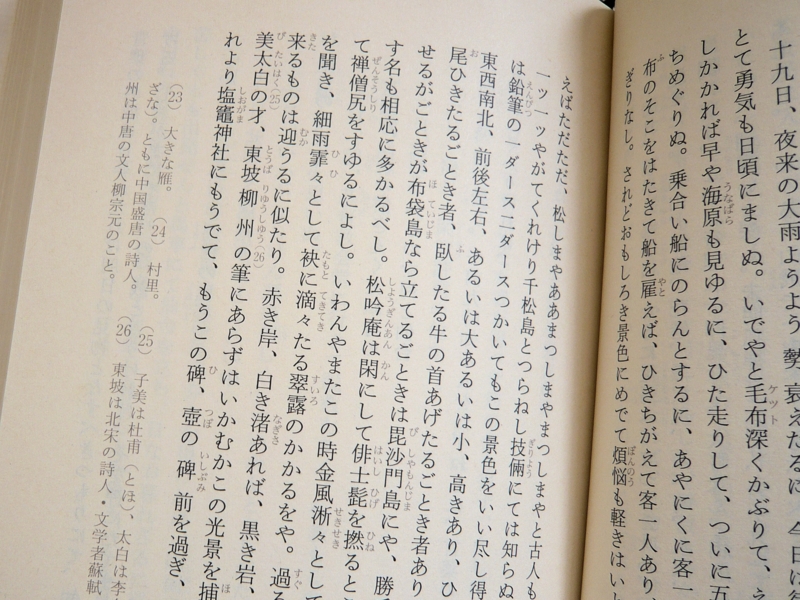 十九日、夜来の大雨ようよう勢衰えたるに、今日は
とて勇気も日頃にましぬ。いでやと毛布深くかぶりて、え
しかかれば早や海原も見ゆるに、ひた走りして、ついに五
ちめぐりぬ。乗合い船にのらんとするに、あやにくに客一
布のそこをはたきて船を雇えば、ひきちがえて客一人あり、
ぎりなし。されどおもしろき景色にめでて煩悩も軽きはい
えばただただ、松しまやああまつしまやまつしまやと古人も
一ッ一ッやがてくれけり千松島とつらねし技倆にては知らぬ
は鉛筆の一ダース二ダースつかいてもこの景色をいい尽し得
東西南北、前後左右、あるいは大あるいは小、高きあり、ひ
尾ひきたるごとき者、臥したる牛の首あげたるごとき者あり
せるがごときが布袋島なら立てるごときは毘沙門島にや、勝
す名も相応に多かるべし。松吟庵は閑にして俳士髭を撚ると
て禅僧尻をすゆるによし。いわんやまたこの時金風淅々として
を聞き、細雨霏々として袂に滴々たる翠露のかかるをや。過る
来るものは迎うるに似たり。赤き岸、白き渚あれば、黒き岩、
美太白の才(25)、東坡柳州(26)の筆にあらずはいかむかこの光景を捕
れより塩竈神社にもうでて、もうこの碑、壺の碑前を過ぎ、
(23) 大きな雁。 (24) 村里。 (25) 子美は杜甫(とほ)、太白は李
ざな)。ともに中国盛唐の詩人。 (26) 東坡は北宋の詩人・文学者蘇軾
州は中唐の文人柳宗元のこと。